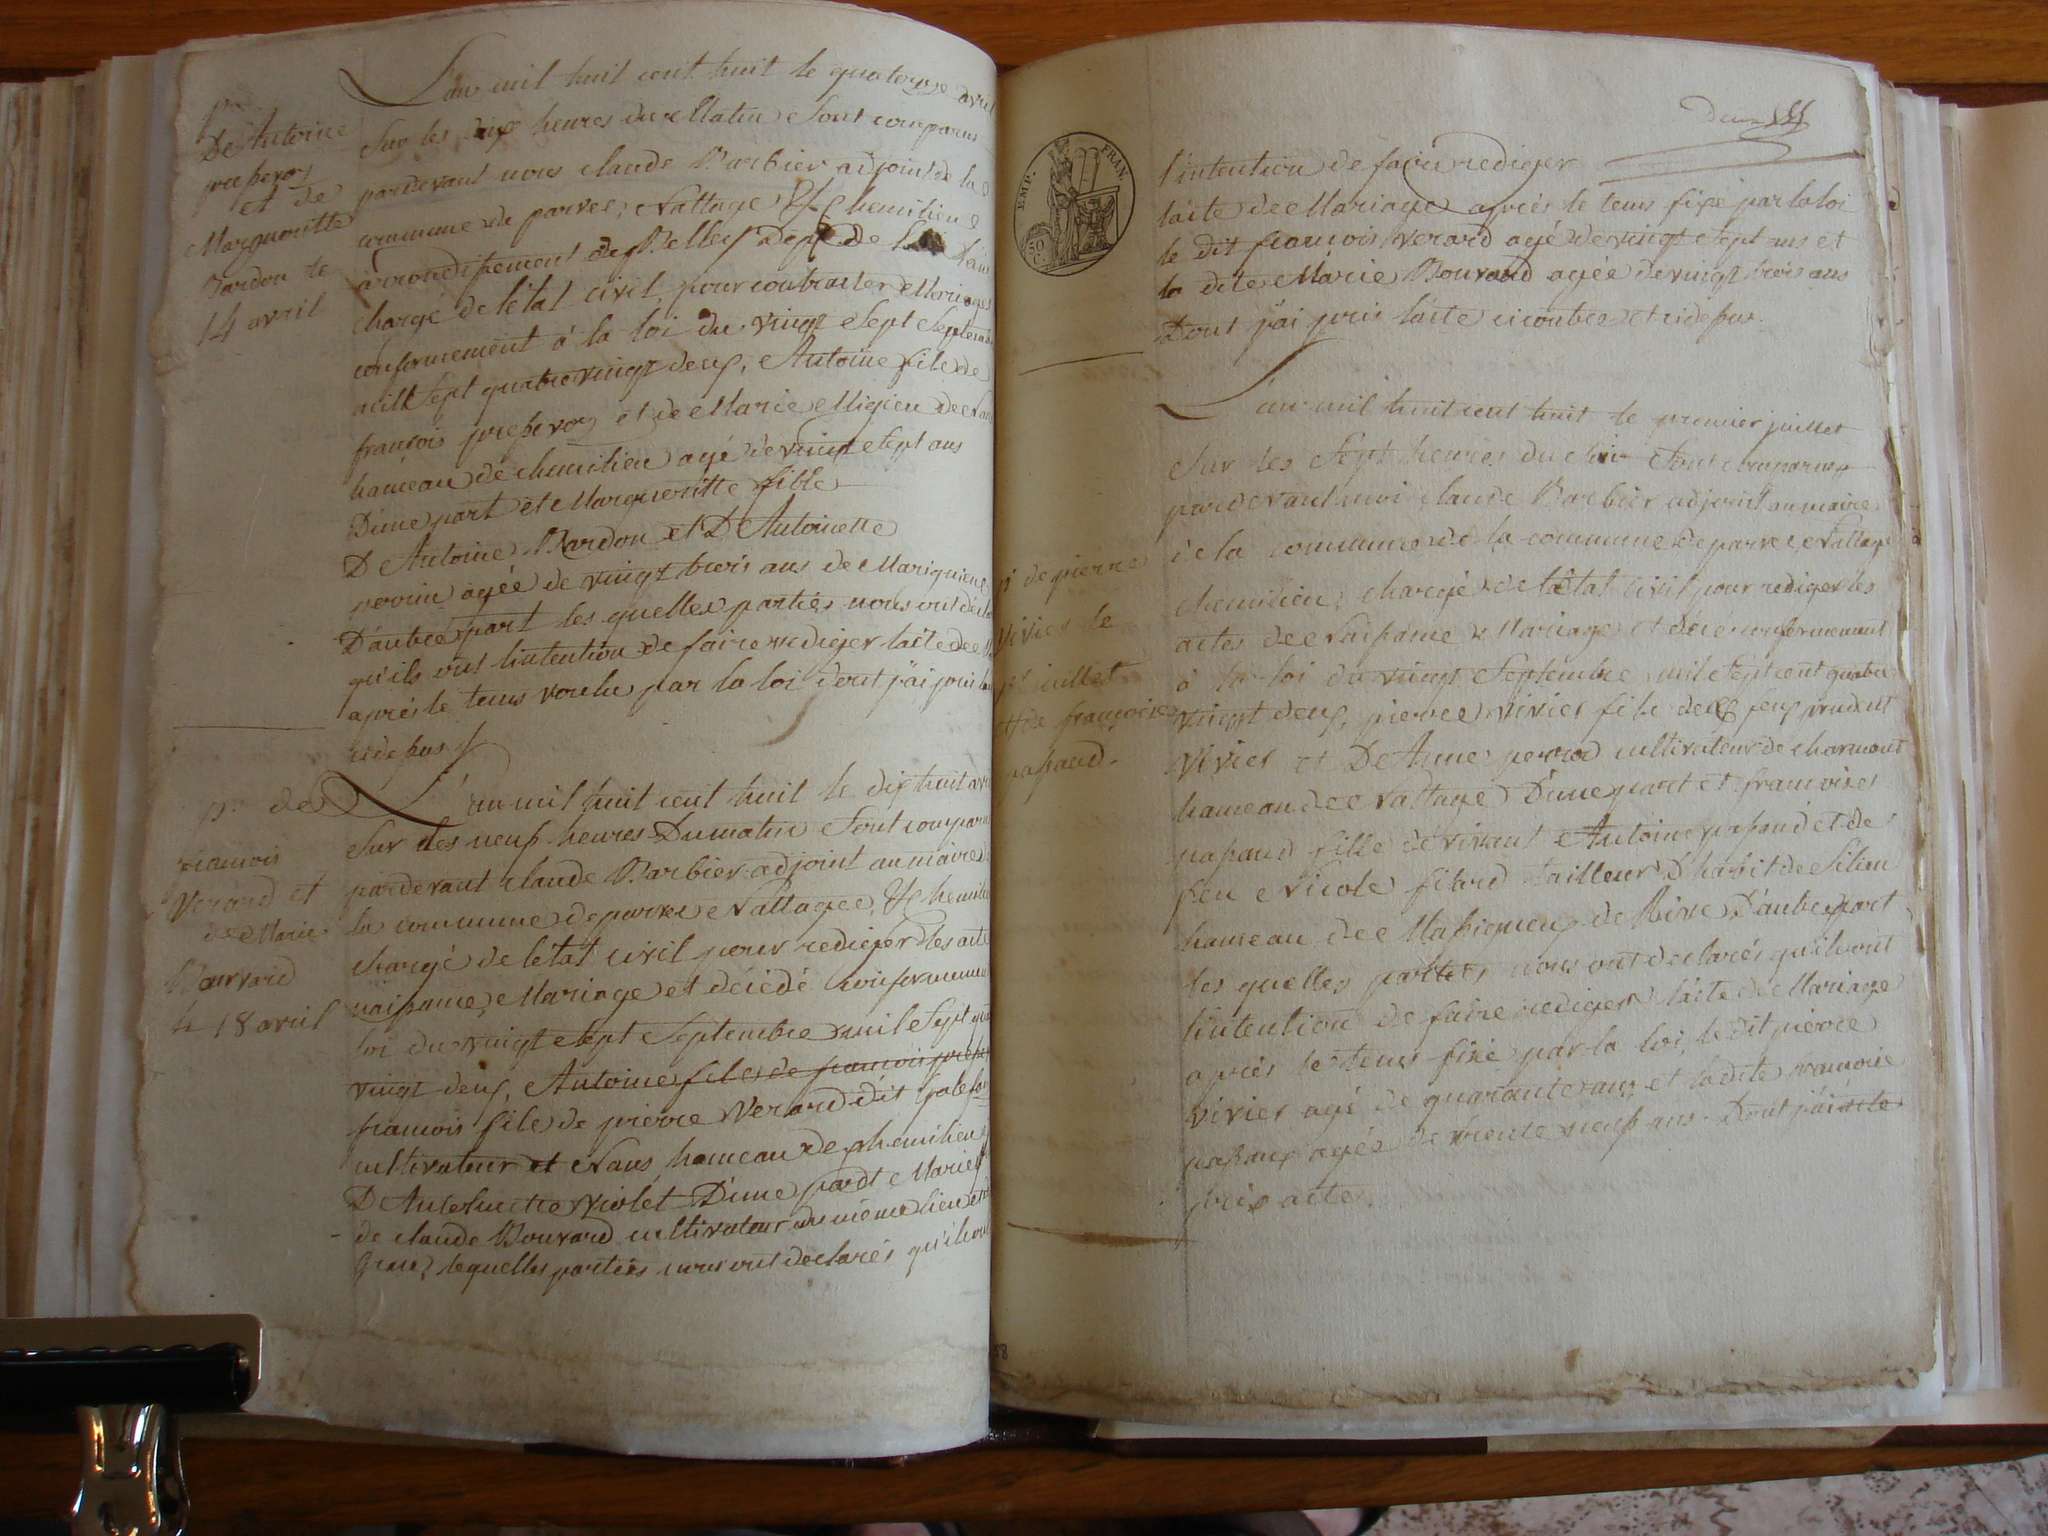 pon
De Antoine
presseroz
et de
Margueritte
Bardon le
14 avril
L'an mil huit cent huit le quatorze avril
Sur les dix heures du Matin Sont comparus
pardevant nous claude Barbier adjoint de la
commune de parves, Nattage & Chemilieu
arrondissement de Belley Depte de l'ain
chargé de l'état civil pour contracter Mariages
conformement à la loi du vingt Sept Septembre
mill Sept quatre vingt deux, Antoine fils de
francois presseroz et de Marie Migieu de Nan
hameau de chemilieu agé de vingt Sept ans
D'une part et Margueritte fille
D'Antoine Bardon et D'Antoinette
perrin agée de vingt trois ans de Marignieu
D'autre part les quelles parties nous ont
qu'ils ont lintention de faire rediger lacte de
après le tems voulu par la loi dont j'ai pris
cidessus
p. de
francois
Verard et
de Marie
Bouvard
le 18 avril
L'an mil huit cent huit le dix huit avril
Sur les neuf heures Du matin Sont comparus
pardevant claude Barbier adjoint au maire
la commune de parves Nattagee, & chemilieu
chargé de l'état civil pour rediger les acte
naissance, Mariage et décédé conformement
loi du vingt Sept Septembre mil Sept
vingt deux, Antoine fils de francois
francois fils de pierre Verard dit
cultivateur et Nans hameau de chemilieu
D'Anthelmette Violet D'une part Marie
de claude Bouvard cultivateur du même lieu
lequelles parties nous ont declarés qu'il ont
EMP. FRAN.
50
l'intention de faire rediger
lacte de Mariage après le tems fixé par la loi
le dit francois verard agé de vingt Sept ans et
la dite Marie Bouvard agée de vingt trois ans
Dont j'ai pris lacte ci contre et cidessus.
p. de pierre
vivier le
pr juillet
et de françoise
passand.
L'an mil huit cent huit le premier juillet
Sur les Sept heures du Soir Sont comparus
pardevant moi claude Barbier adjoint au maire
de la commune de la commune de parves, Nattage
chemilieu, chargé de l'état civil pour rediger les
actes de Naissance Mariage et décé conformement
à la loi du vingt Septembre mil Sept cent quatre
vingt deux, pierre vivier fils de feu prudent
Vivier et De Anne perrod cultivateur de charmont
hameau de Nattage D'une part et francoise
passand fille de vivant Antoine passand et de
feu Nicole fitard tailleur D'habit de
hameau de Massignieux de Rive D'autre part
les quelles parties nous ont declarés qu'il ont
lintention de faire rediger lacte de Mariage
après le tems fixé par la loi, le dit pierre
vivier agé de quarante ans et la dite francoise
passand agée de trente neuf ans Dont j'ai acte
pris acte.
58